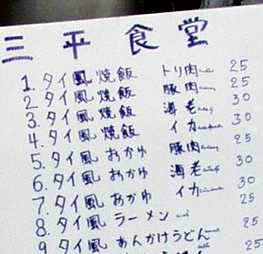 三平食堂
1. タイ風焼飯 トリ肉 25
2. タイ風焼飯 豚肉 25
3. タイ風焼飯 海老 30
4. タイ風焼飯 イカ 30
5. タイ風おかゆ 豚肉 25
6. タイ風おかゆ 海老 30
7. タイ風おかゆ イカ 30
8. タイ風ラーメン 25
9. タイ風あんかけうどん